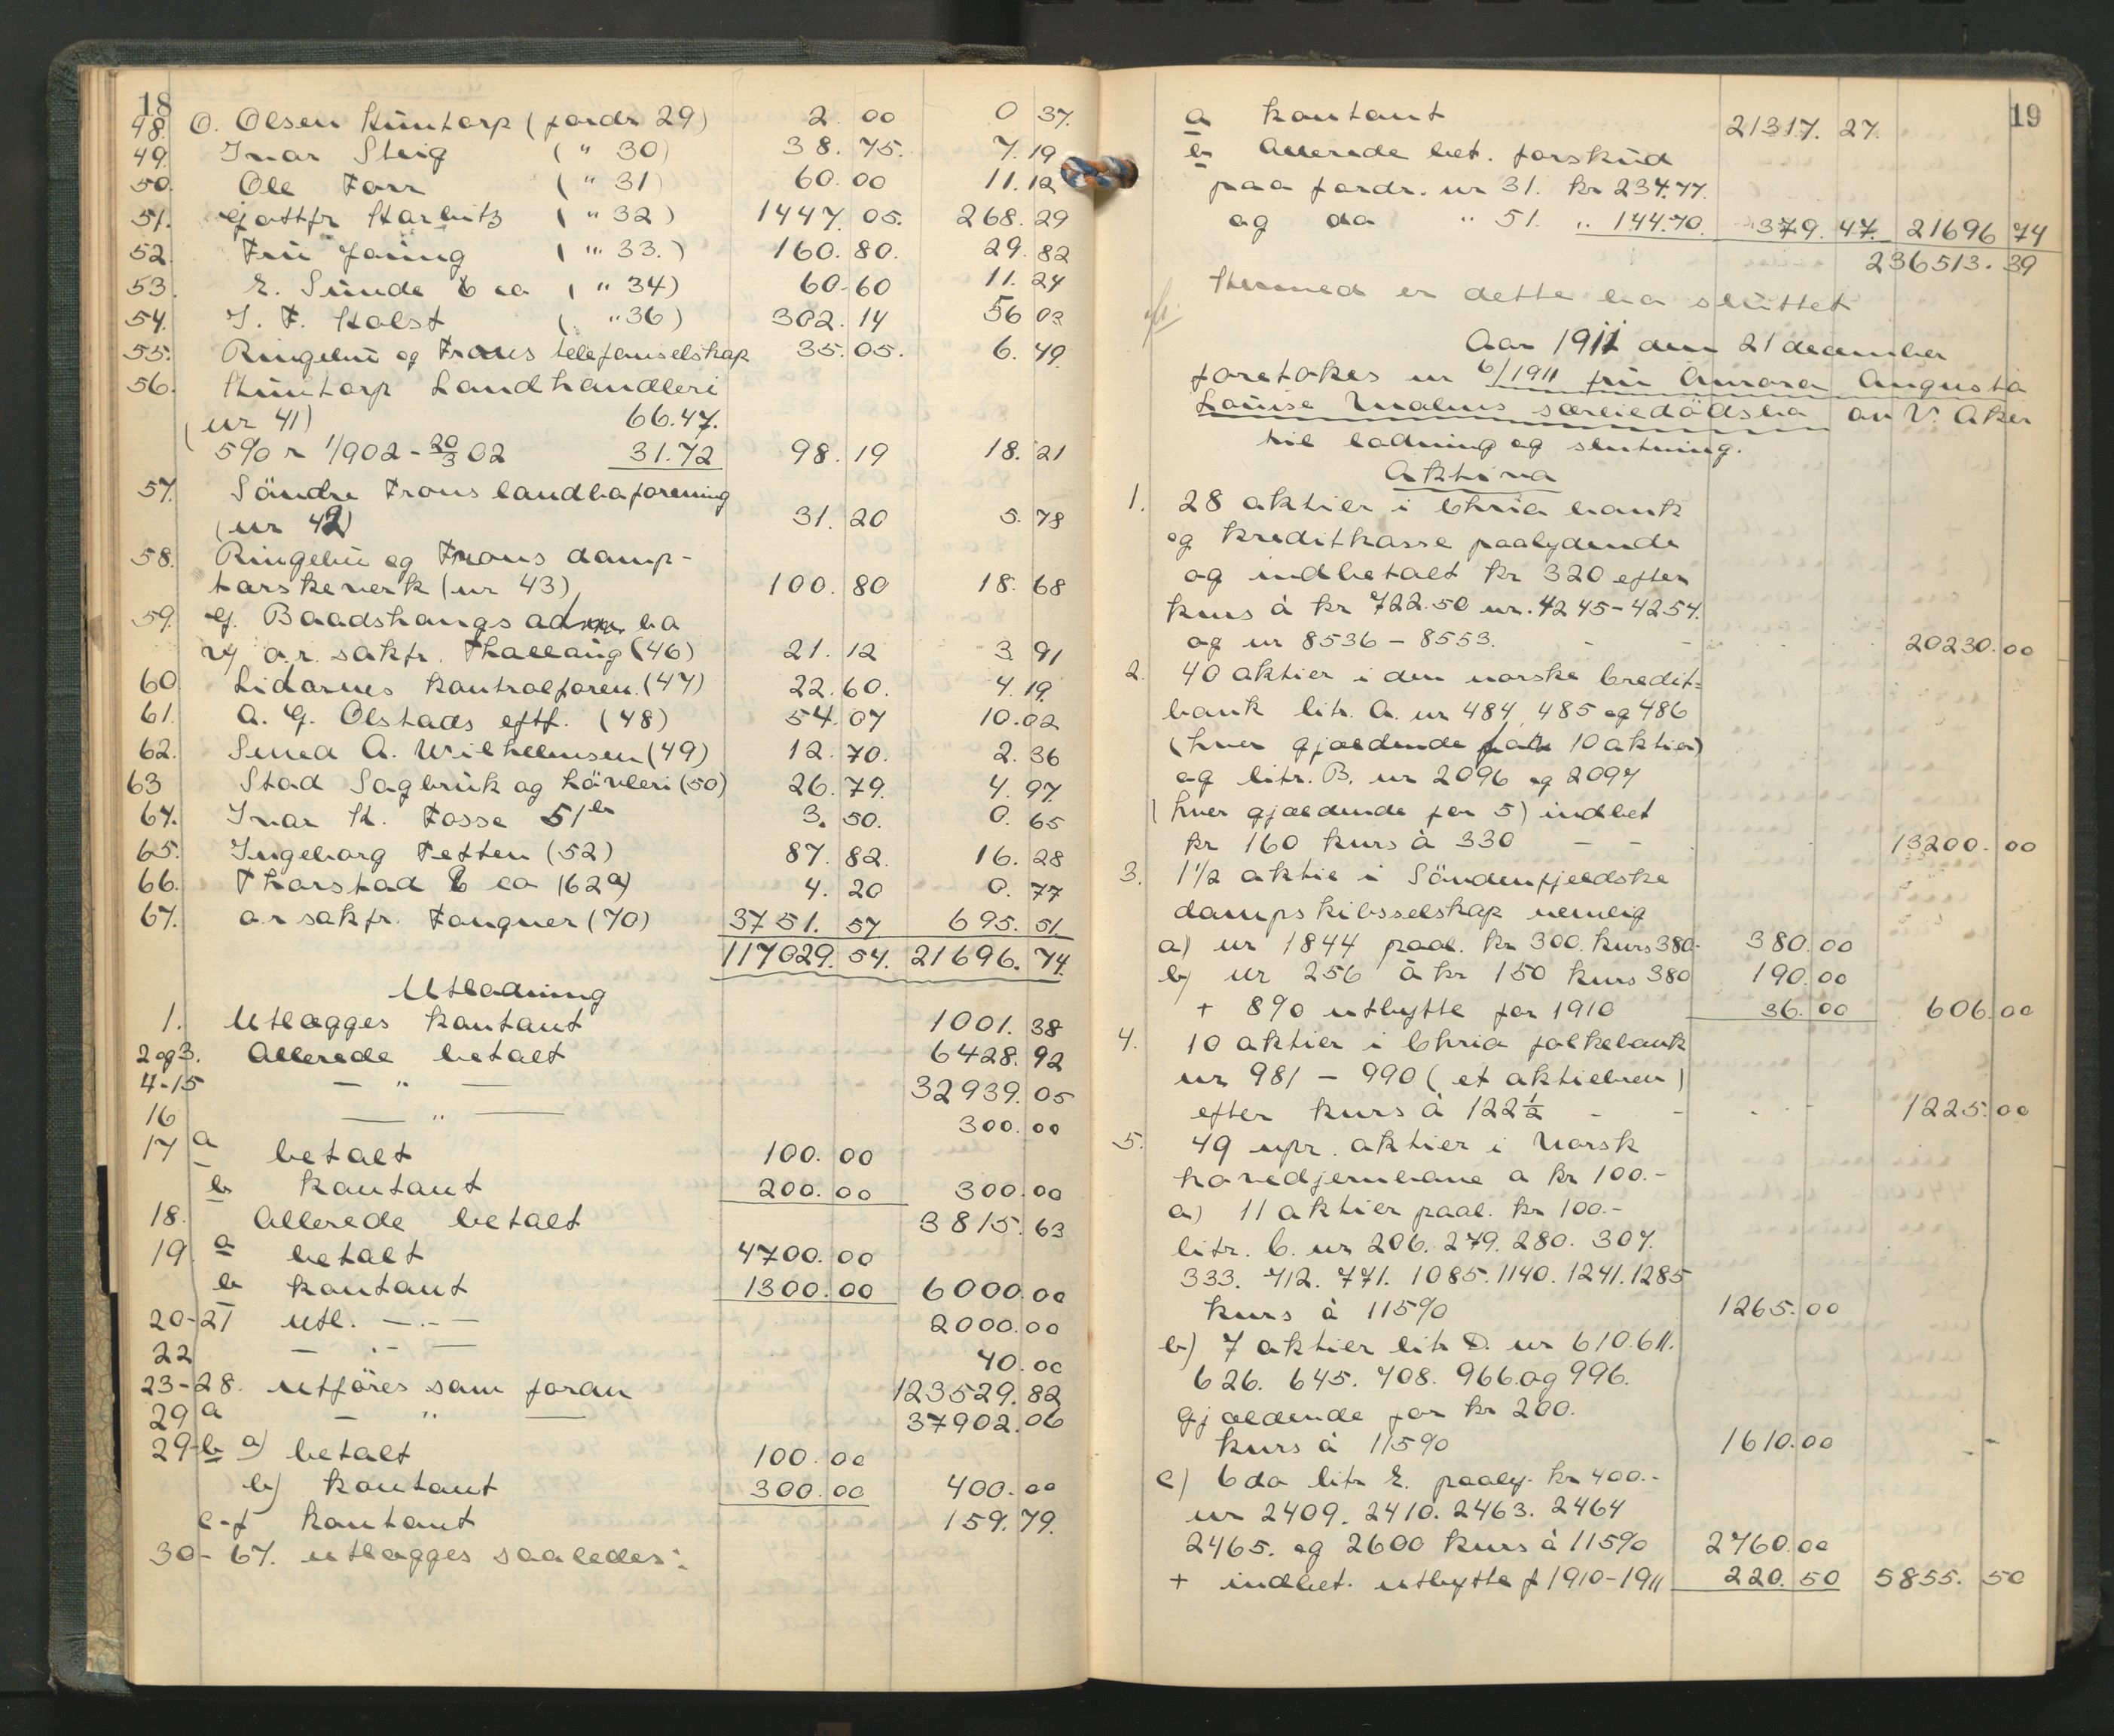 18
48. O. Olsen Kuntorp (fordr 29) 2.00 0 37.
49. Ivar Steig ( " 30) 38.75. 7.19
50. Ole Forr ( " 31) 60.00 11.12
51. Gottfr Harbitz ( " 32) 1447.05. 268.29
52. Fru Joing ( " 33.) 160.80. 29.82
53. E. Sunde & co ( " 34) 60.60 11.24
54. I. F. Holst ( " 36) 302.14 56 03
55. Ringebu og Frons telefonselskap 35.05. 6.49
56. Kuntorp Landhandleri
(nr 41) 66.47.
5% r 1/902 - 20/3 02 31.72 98.19 18.21
57. Söndre Frons landboforening
(nr 42) 31.20 5.78
58. Ringebu og Frons damp-
tørskeverk (nr 43) 100.80 18.68
59. G. Baadshaugs adm. bo
v/ o.r. sakfr. Thallaug (46) 21.12 3 91
60 Lidarnes kontrolforen. (47) 22.60. 4.19.
61. A. G. Olstads eftf. (48) 54.07 10.02
62. Smed A. Wilhelmsen (49) 12.70. 2.36
63 Stad Sagbruk og hövleri (50) 26.79. 4.97.
64. Ivar H. Fosse 51 b 3.50. 0.65
65. Ingeborg Tetten (52) 87.82. 16.28
66. Thorstad & co (62 a) 4.20 0.77
67. o.r sakfr. Fougner (70) 3751.57 695.51
117029.54. 21696.74
Utlodning
1. Utlægges kontant 1001.38
2 og 3. Allerede betalt 6428.92
4-15 — " — 32939.05
16 — " — 300.00
17 a betalt 100.00
b kontant 200.00 300.00
18. Allerede betalt 3815.63
19 a betalt 4700.00
b kontant 1300.00 6000.00
20-21 utl. — . — 2000.00
22 — . — 40.00
23-28. utföres som foran 123529.82
29 a — " — 37902.06
29-b a) betalt 100.00
b) kontant 300.00 400.00
c-f kontant 159.79.
30-67. utlægges saaledes:
19
a kontant 21317.27.
b Allerede bet. forskud
paa fordr. nr 31. kr 234.77.
og do " 51. " 144.70. 379.47. 21696 74
236513.39
Hermed er dette bo sluttet
Aar 1911 den 21 december
foretokes nr 6/1911 fru Aurora Augusta
Louise Malms særeiedödsbo av V. Aker
til lodning og slutning.
Aktiva
1. 28 aktier i Chria bank
og kreditkasse paalydende
og indbetalt kr 320 efter
kurs à kr 722.50 nr. 4245-4254.
og nr 8536 - 8553. - - 20230.00
2. 40 aktier i den norske Credit=
bank litr. A. nr 484, 485 og 486
(hver gjældende for 10 aktier)
og litr. B. nr 2096 og 2097
(hver gjældende for 5) indbet
kr 160 kurs à 330 - - 13200.00
3. 1 1/2 aktie i Söndenfjeldske
dampskibsselskap nemlig
a) nr 1844 paal. kr 300. kurs 380- 380.00
b) nr 256 à kr 150 kurs 380 190.00
+ 8% utbytte for 1910 36.00 606.00
4. 10 aktier i Chria folkebank
nr 981 - 990 (et aktiebrev)
efter kurs à 122 1/2 - - 1225.00
5. 49 upr. aktier i Norsk
hovedjernbane a kr 100.-
a) 11 aktier paal. kr 100.-
litr. C. nr 206. 279. 280. 307.
333. 712. 771. 1085. 1140. 1241. 1285
kurs à 115% 1265.00
b) 7 aktier litr D. nr 610. 611.
626. 645. 708. 966. og 996.
gjældende for kr 200.
kurs à 115% 1610.00
c) 6 do litr E. paaly. kr 400.-
nr 2409. 2410. 2463. 2464
2465. og 2600 kurs à 115% 2760.00
+ indbet. utbytte f 1910-1911 220.50 5855.50